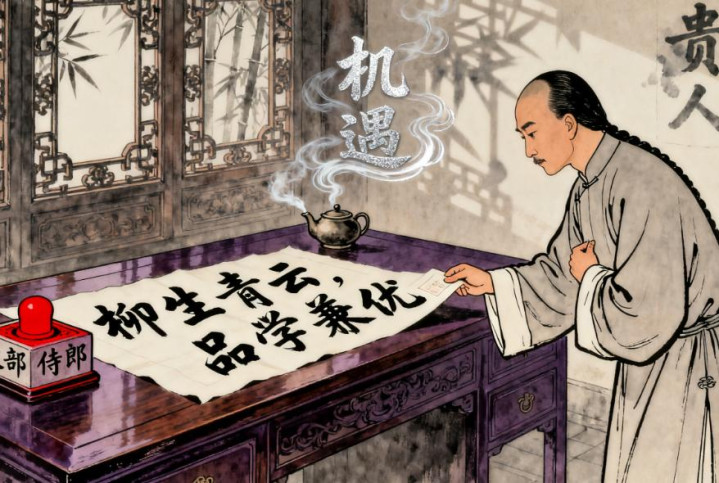 机
遇
贵
人
柳生青云，
品学兼优
部 侍郎